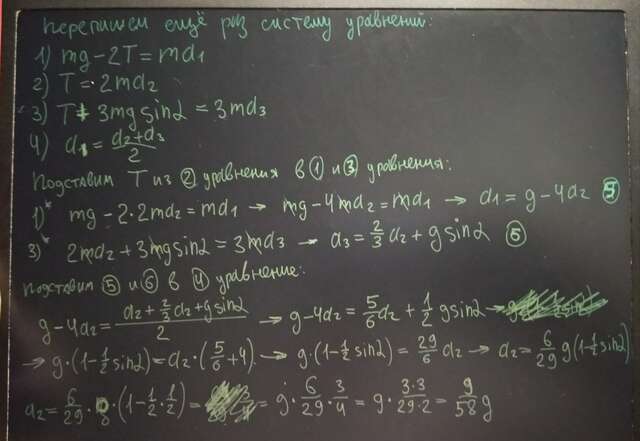 Перепишем ещё раз систему уравнений:
1) mg-2T=ma₁
2) T=2ma₂
3) T+3mgsinα=3ma₃
4) a₁=(a₂+a₃)/2
Подставим T из ② уравнения в ① и ③ уравнения:
1)* mg-2·2ma₂=ma₁ → mg-4ma₂=ma₁ → a₁=g-4a₂ ⑤
3)* 2ma₂+3mgsinα=3ma₃ → a₃=2/3 a₂+gsinα ⑥
Подставим ⑤ и ⑥ в ④ уравнение:
g-4a₂=(a₂+2/3 a₂+gsinα)/2 → g-4a₂=5/6 a₂+1/2 gsinα →
→ g·(1-1/2 sinα)=a₂·(5/6+4) → g·(1-1/2 sinα)=29/6 a₂ → a₂=6/29 g(1-1/2 sinα)
a₂=6/29·g·(1-1/2·1/2)= =g·6/29·3/4=g·(3·3)/(29·2)=9/58 g